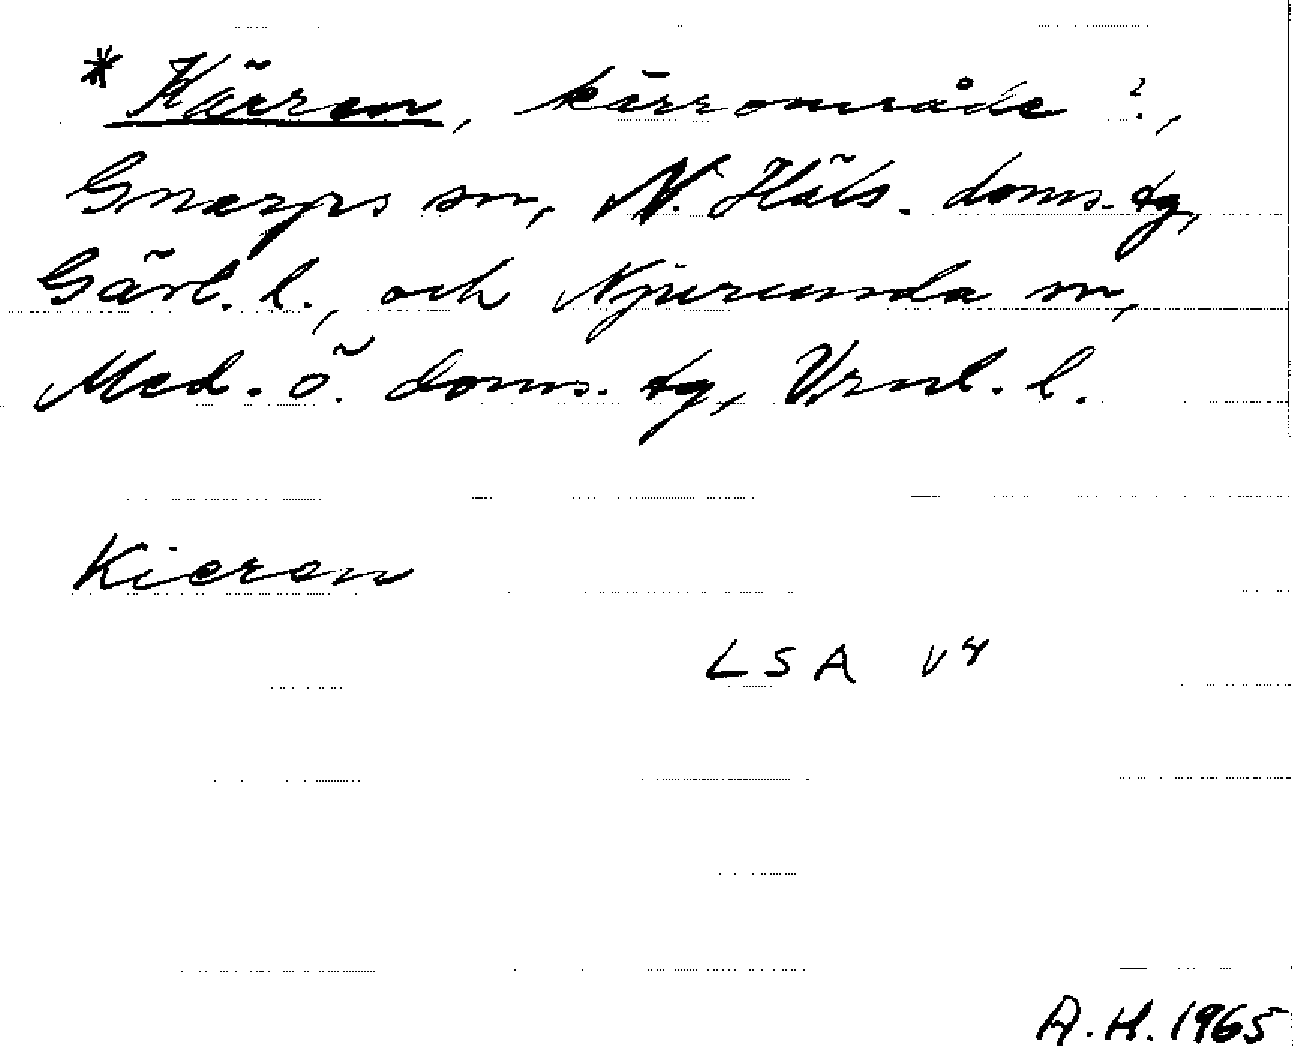 * Kärren, kärrområde ?,
Gnarps sn, N. Häls. doms. tg,
Gävl. l., och Njurunda sn,
Med. ö. doms. tg, Vrnl. l.
Kieren
LSA V8
A.H. 1965